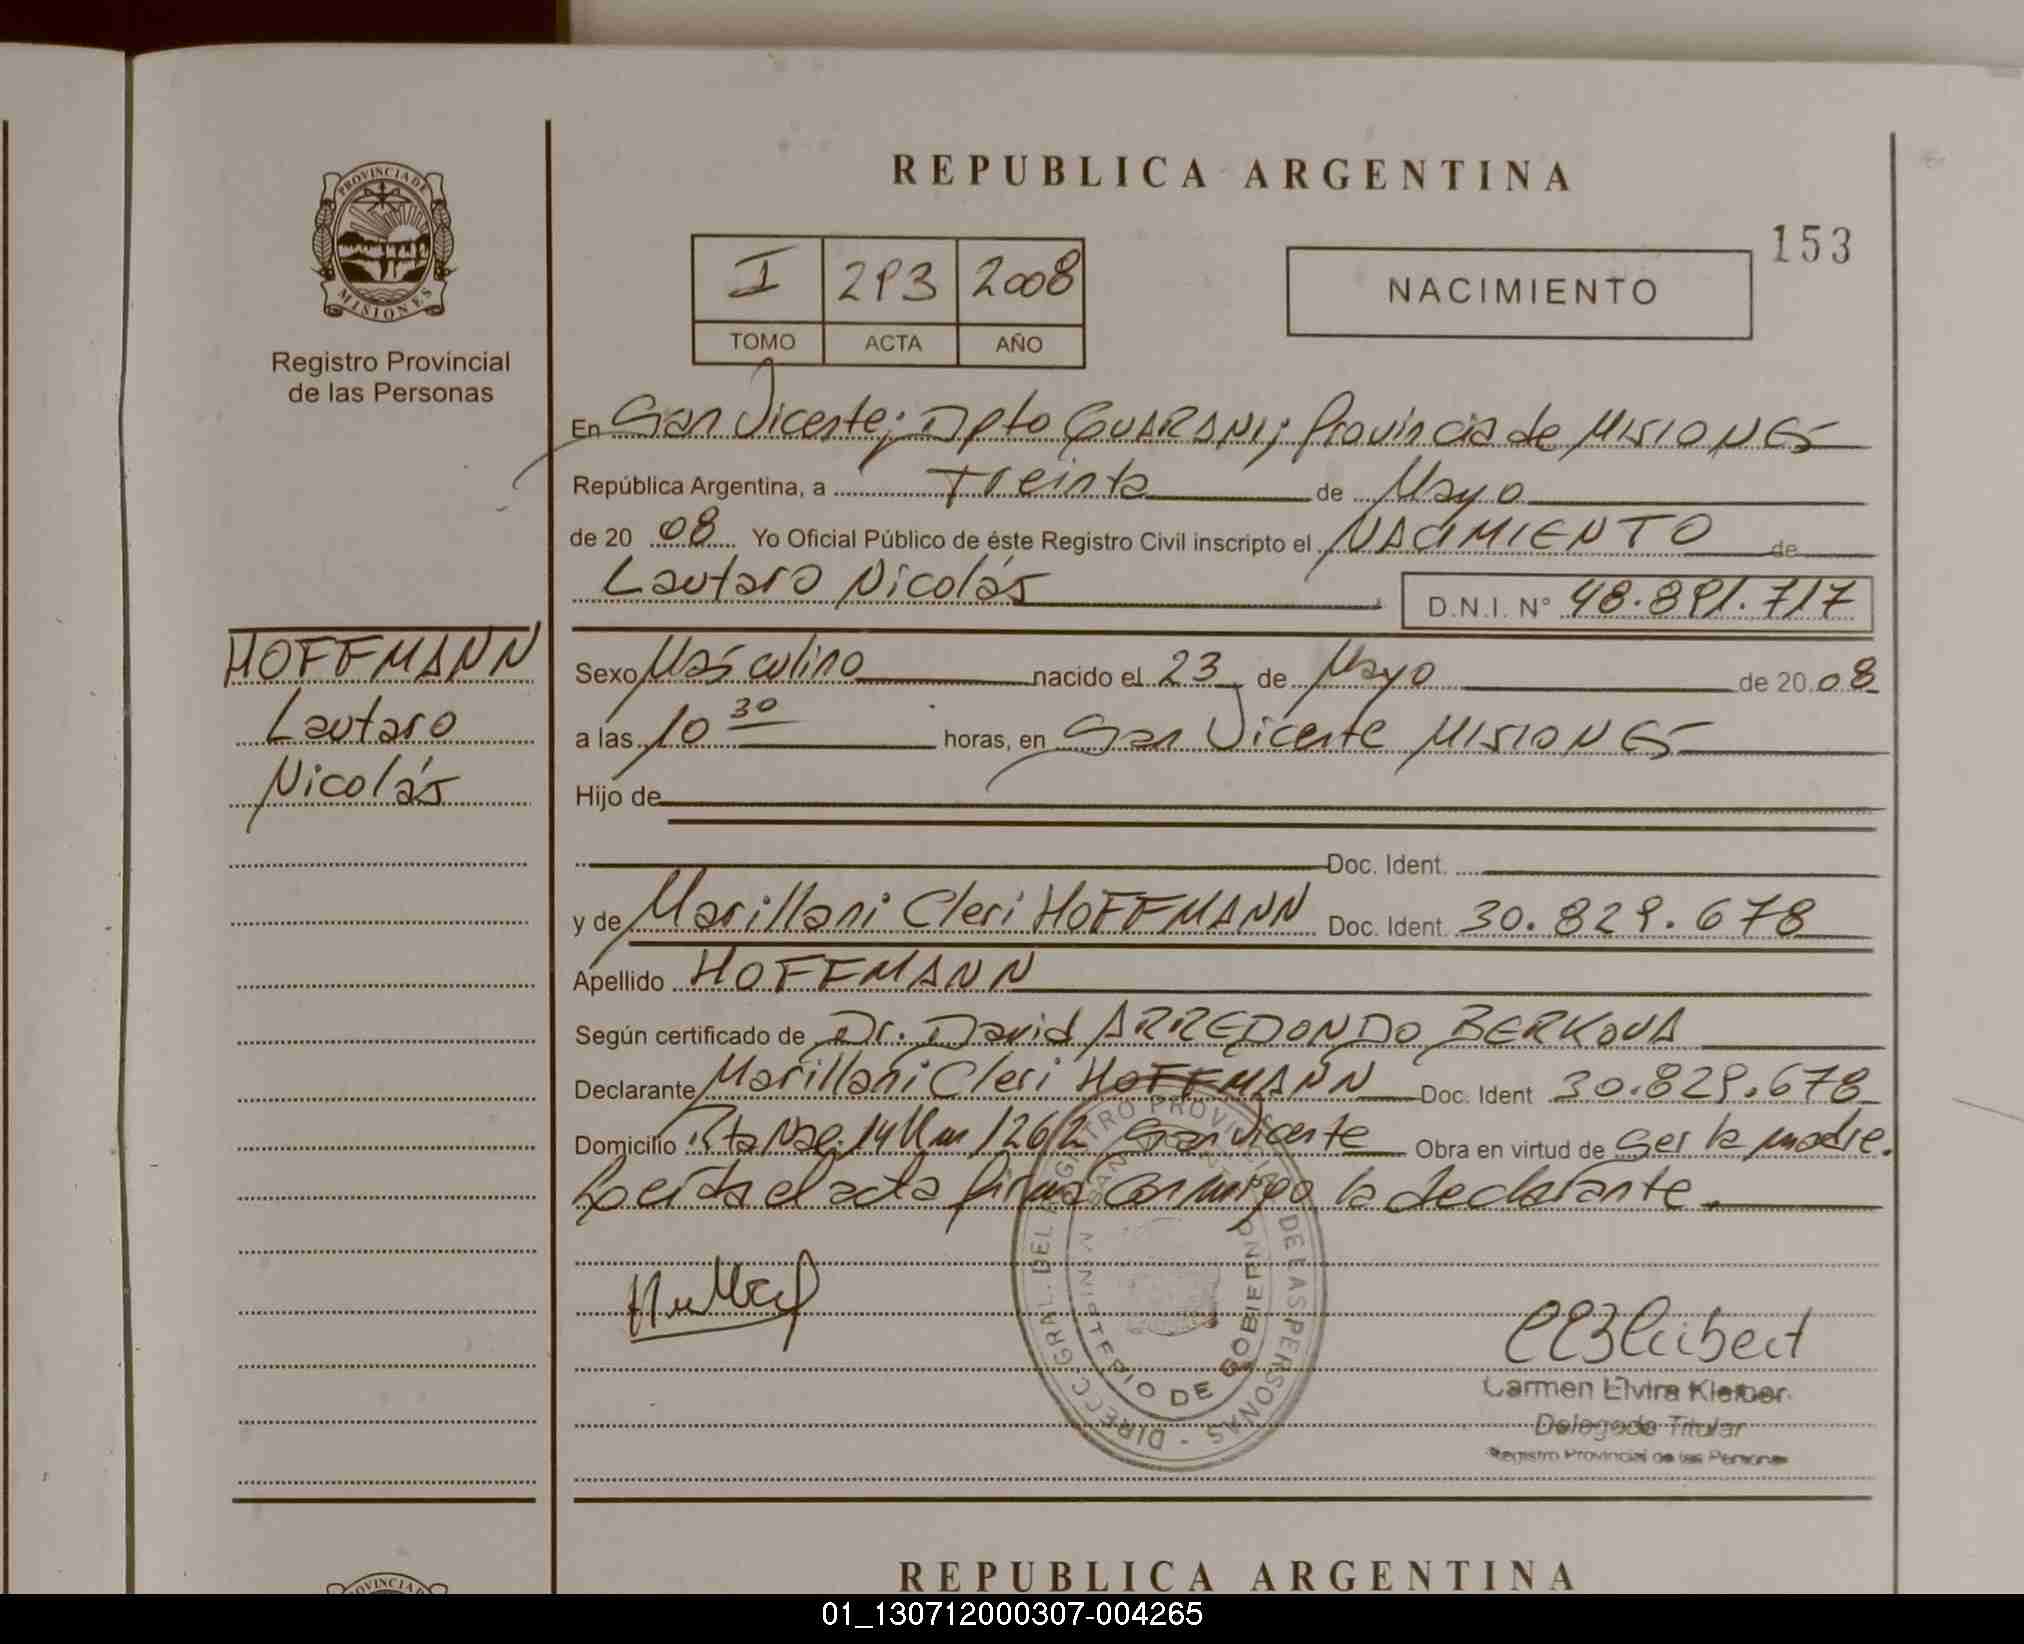 REPUBLICA ARGENTINA
153
PROVINCIA DE
MISIONES
Registro Provincial
de las Personas
I 293 2008
TOMO ACTA AÑO
NACIMIENTO
En San Vicente; Dpto GUARANI; Provincia de MISIONES
República Argentina, a Treinta de Mayo
de 20 08 Yo Oficial Público de éste Registro Civil inscripto el NACIMIENTO de
Lautaro Nicolás D.N.I. N° 48.891.717
HOFFMANN
Lautaro
Nicolás
Sexo Masculino nacido el 23 de Mayo de 20 08
a las 10 30 horas, en San Vicente MISIONES
Hijo de
Doc. Ident.
y de Marillani Cleri HOFFMANN Doc. Ident. 30.829.678
Apellido HOFFMANN
Según certificado de Dr. David ARREDONDO BERKOVA
Declarante Marillani Cleri HOFFMANN Doc. Ident 30.829.678
Domicilio Rta Nac. 14 Km 1262 San Vicente Obra en virtud de ser la madre.
Leída el acta firma conmigo la declarante.
DIRECC. GRAL. DEL REGISTRO PROVINCIAL DE LAS PERSONAS
MINISTERIO DE GOBIERNO
Carmen Elvira Kleiber
Delegada Titular
Registro Provincial de las Personas
PROVINCIA DE
REPUBLICA ARGENTINA
01_130712000307-004265